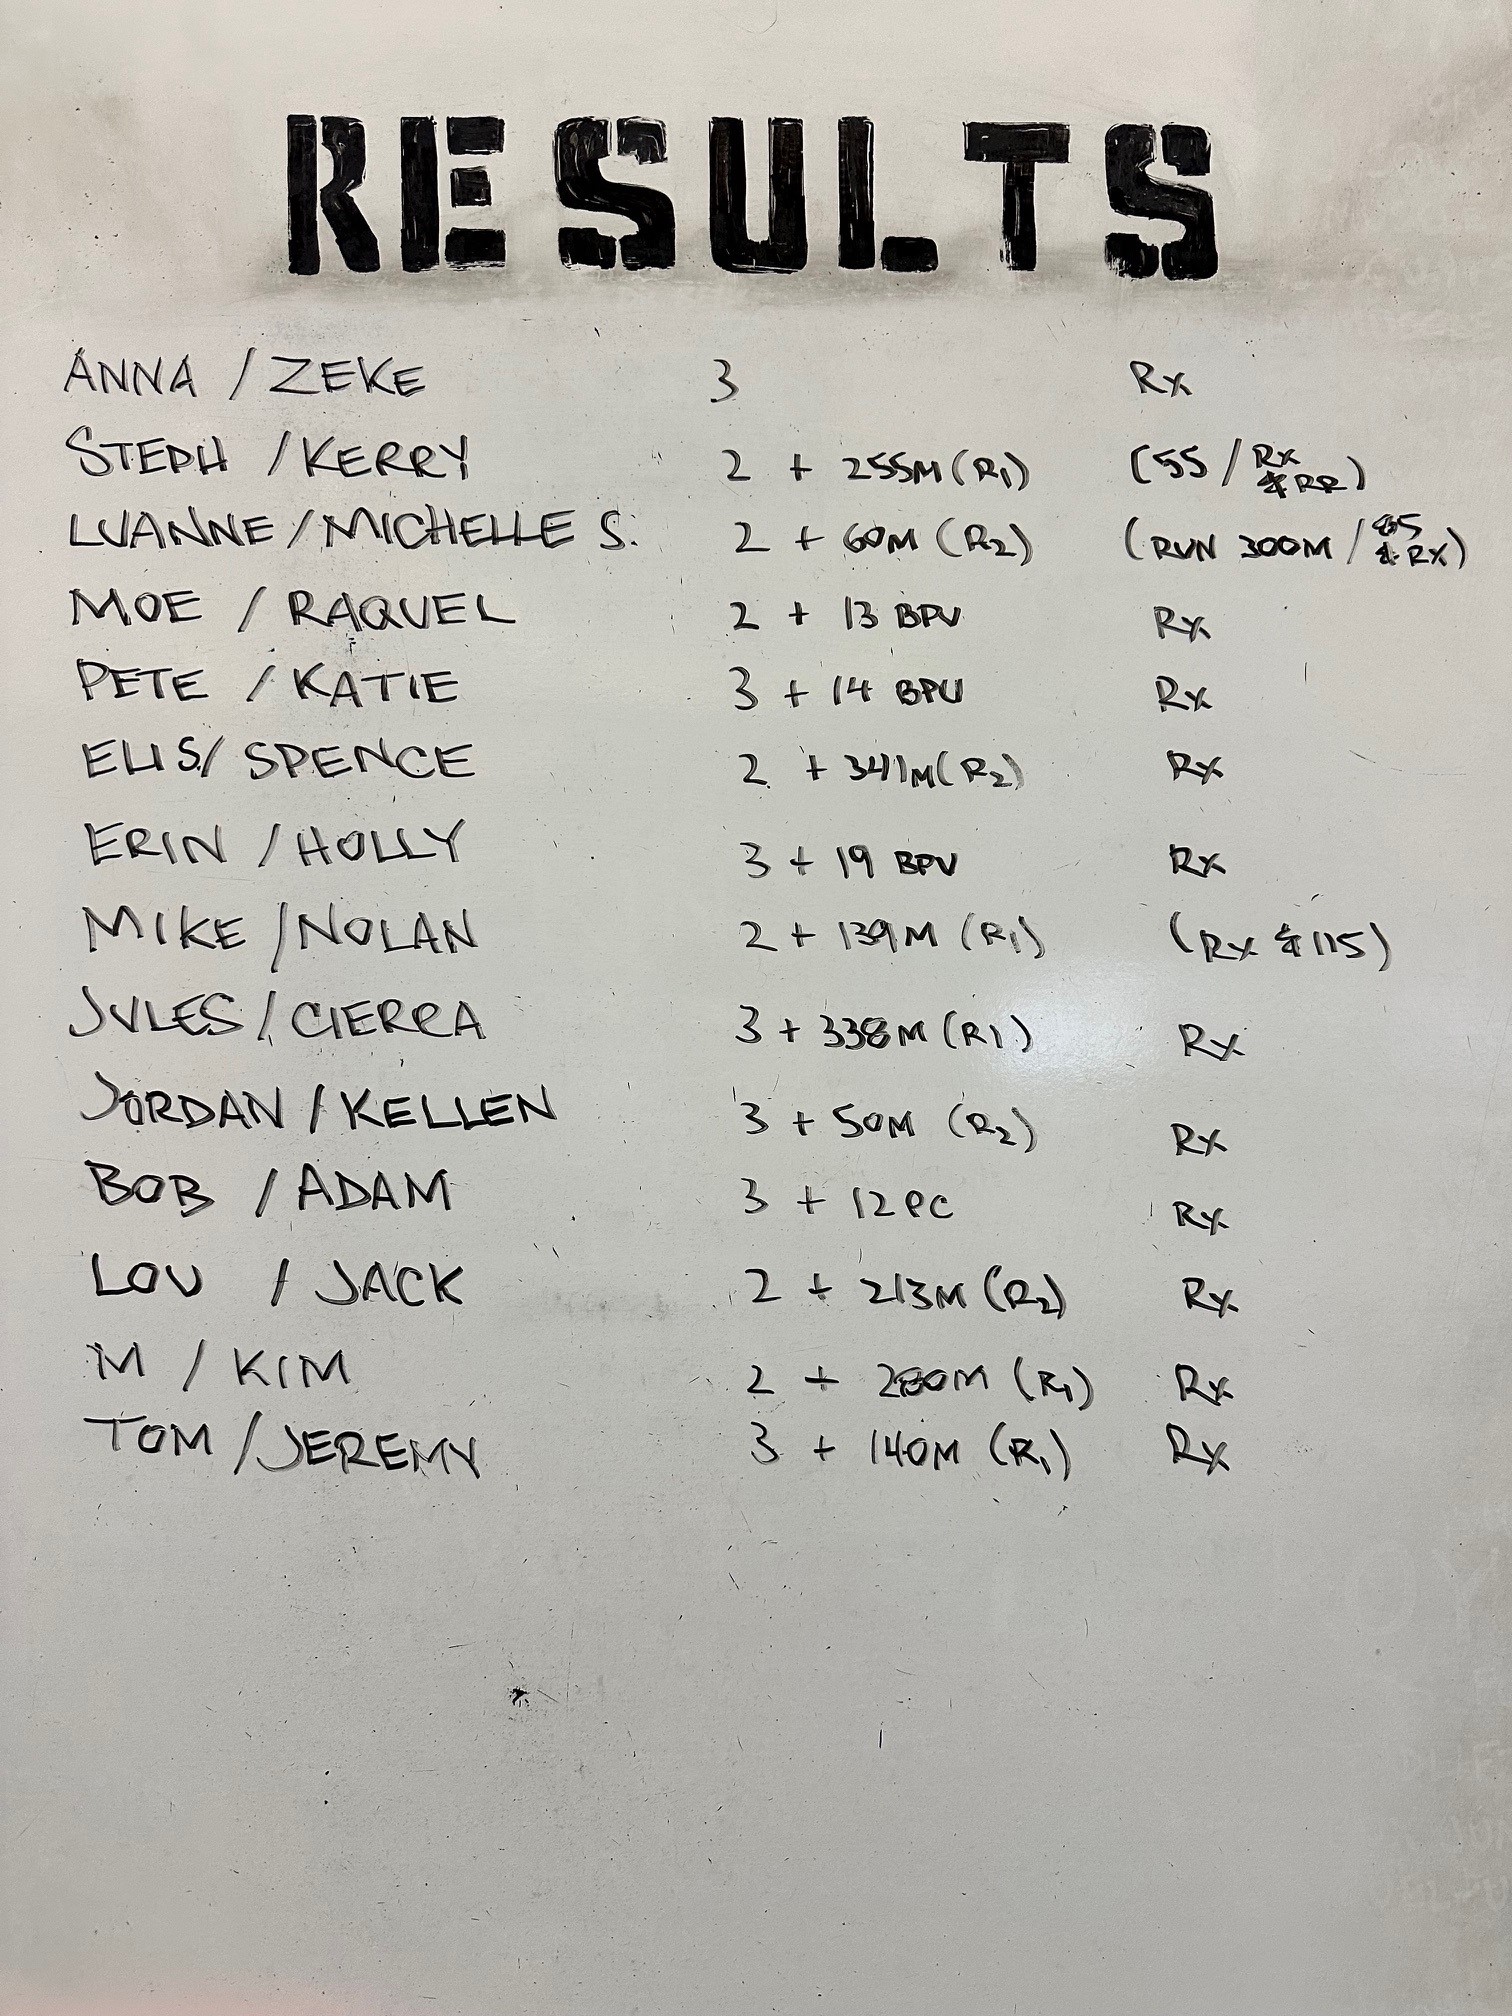 RESULTS
ANNA / ZEKE 3 Rx
STEPH / KERRY 2 + 255M (R1) (55 / Rx & RR)
LUANNE / MICHELLE S. 2 + 60M (R2) (RUN 300M / 85 & RX)
MOE / RAQUEL 2 + 13 BPU Rx
PETE / KATIE 3 + 14 BPU Rx
ELIS / SPENCE 2 + 341M (R2) Rx
ERIN / HOLLY 3 + 19 BPU Rx
MIKE / NOLAN 2 + 139M (R1) (Rx & 115)
JULES / CIERRA 3 + 338M (R1) Rx
JORDAN / KELLEN 3 + 50M (R2) Rx
BOB / ADAM 3 + 12 PC Rx
LOU / JACK 2 + 213M (R2) Rx
M / KIM 2 + (R1) Rx
TOM / JEREMY 3 + 140M (R1) Rx